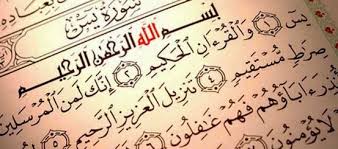 بِعِبَادِهِ
سُورَةُ يسٓ
بِسْمِ اللَّهِ الرَّحْمَٰنِ الرَّحِيمِ
يسٓ ١ وَالْقُرْءَانِ الْحَكِيمِ ٢ إِنَّكَ لَمِنَ الْمُرْسَلِينَ
صِرَٰطٍ مُّسْتَقِيمٍ ٤ تَنزِيلَ الْعَزِيزِ الرَّحِيمِ ٥
ءَابَآؤُهُمْ فَهُمْ غَٰفِلُونَ
لَا يُؤْمِنُونَ